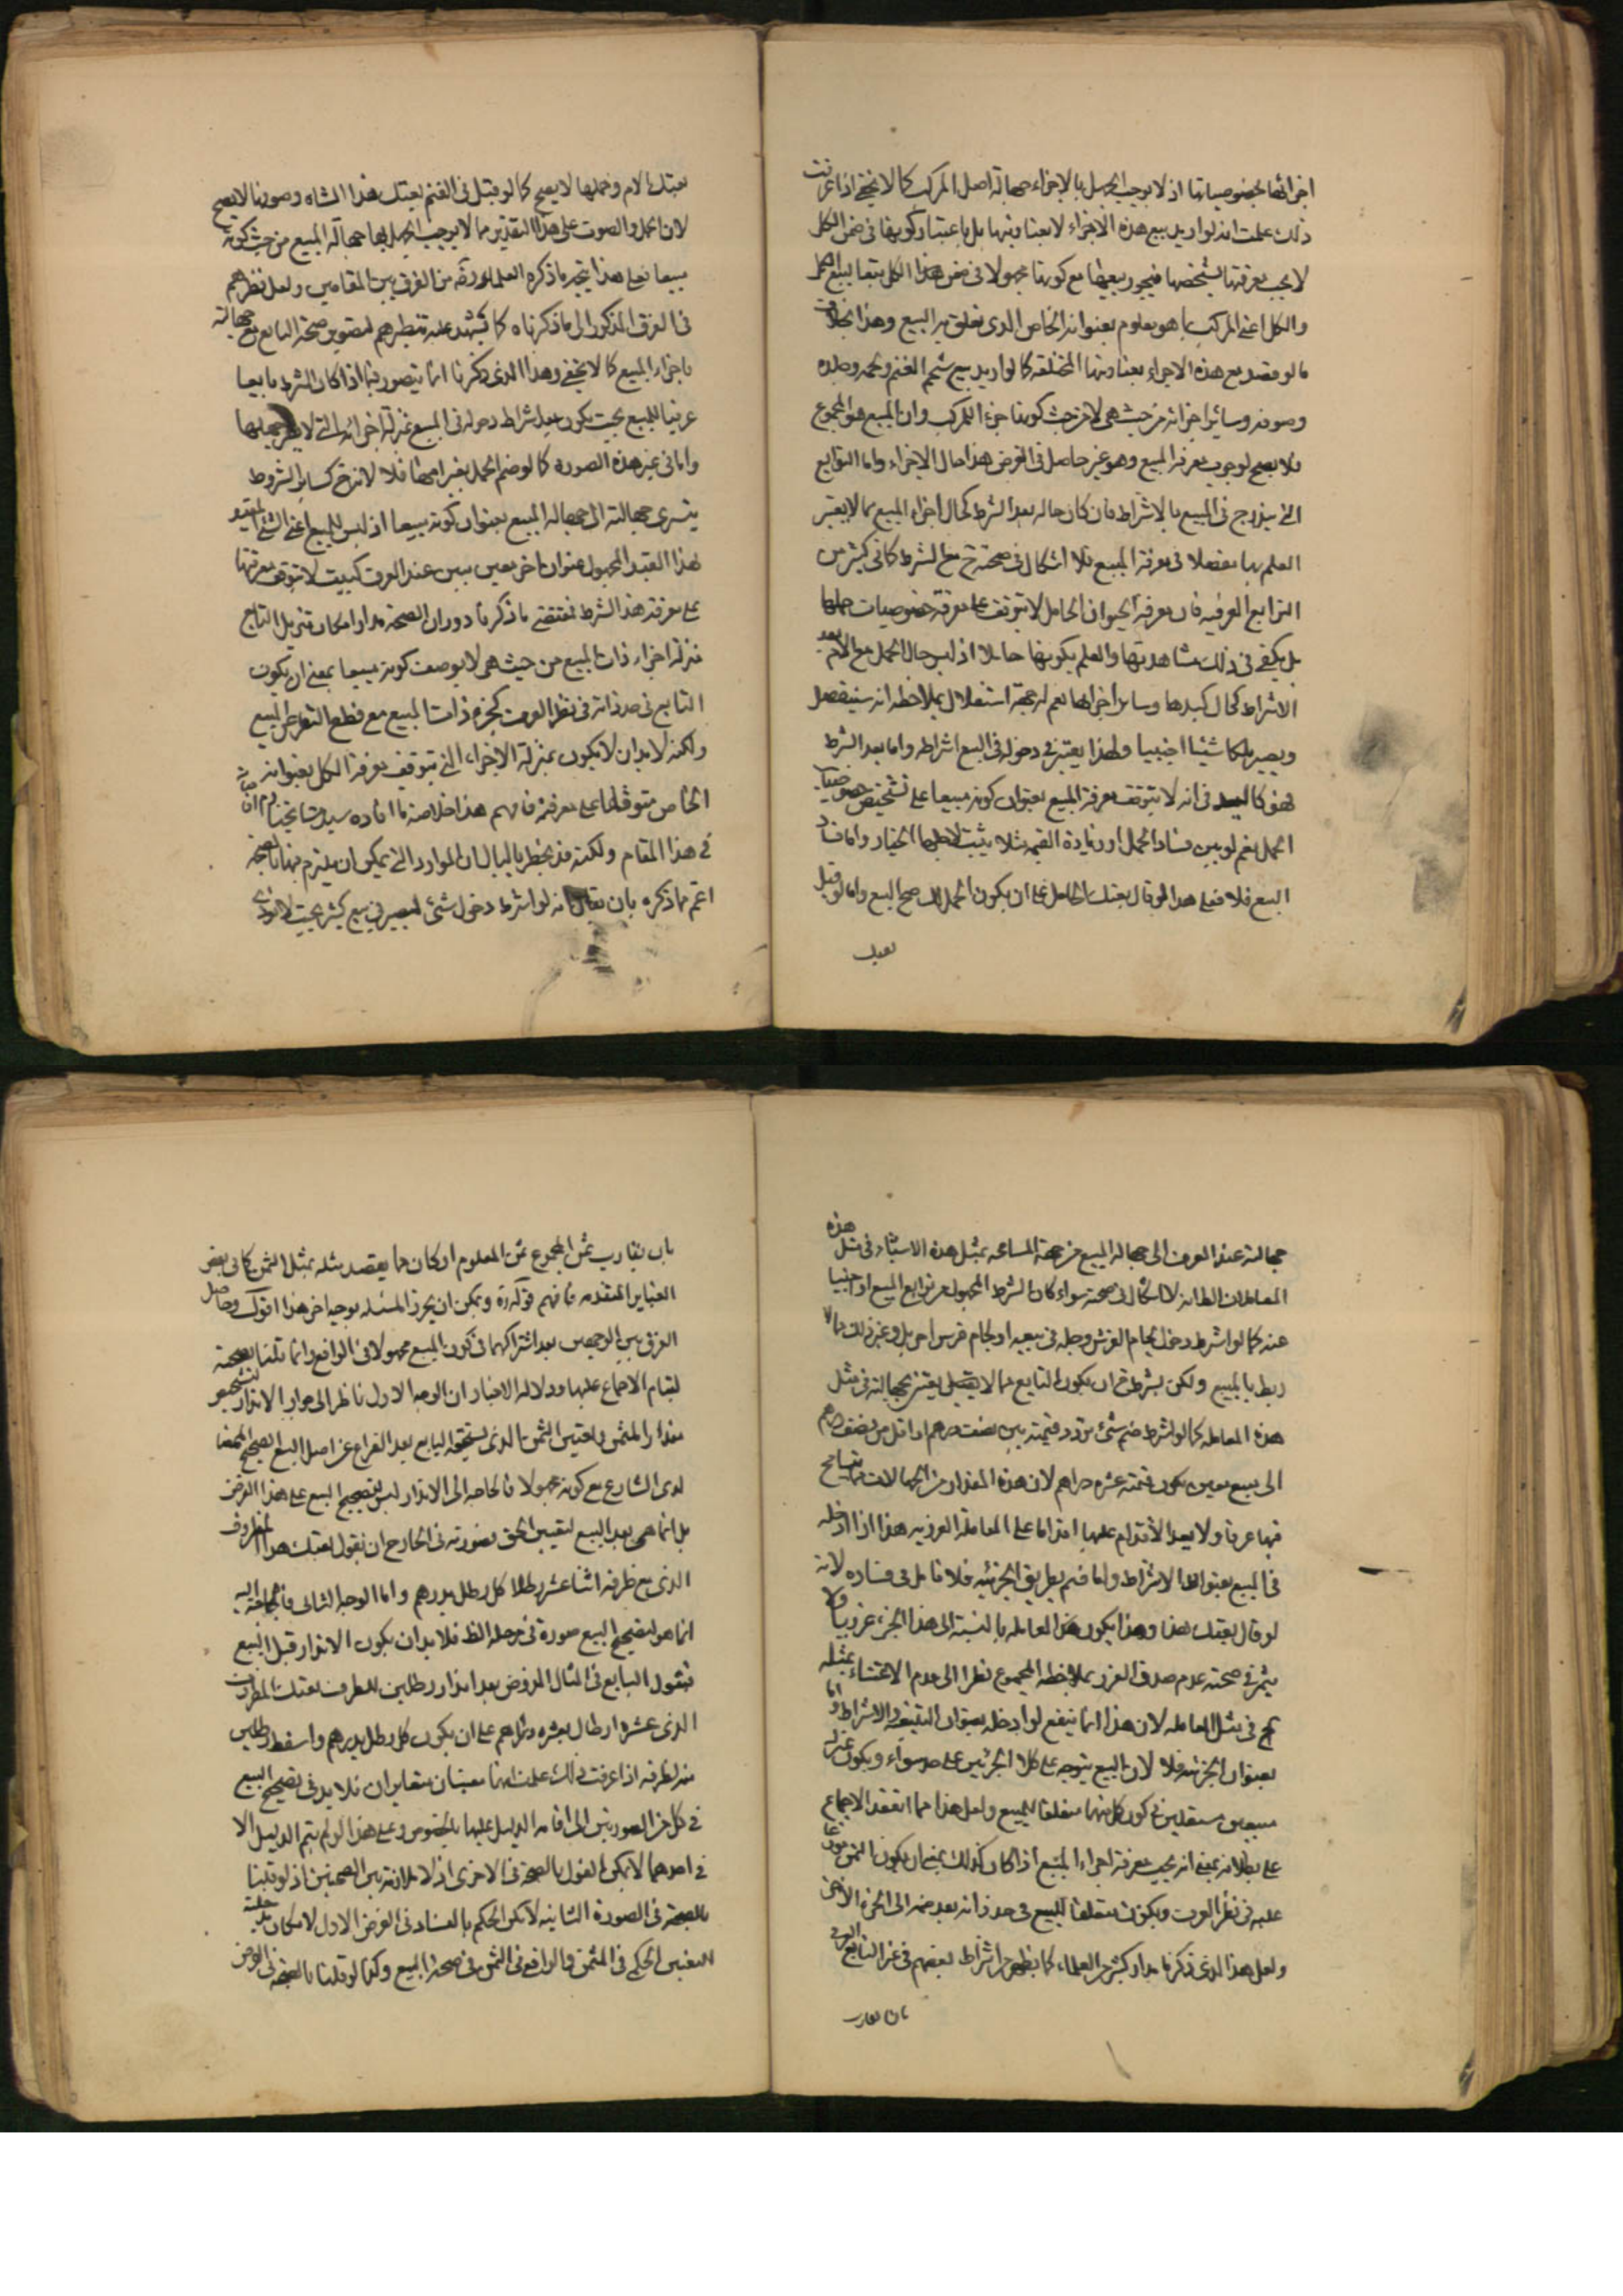 اجزائها بخصوصياتها اذ لا يوجب الجهل بالاجزاء جهالة اصل المركب كما لا يخفى اذا عرفت
ذلك علمت انه لو اريد بيع هذه الاجزاء لا بعناوينها بل باعتبار كونها في ضمن الكل
لا يجب معرفتها بشخصها فيجوز بيعها مع كونها مجهولا في ضمن هذا الكل تبعا لبيع الكل
والكل اعني المركب بما هو معلوم بعنوانه الخاص الذي تعلق به البيع وهذا بخلاف
ما لو قصد بيع هذه الاجزاء بعناوينها المختلفة كما لو اريد بيع شحم الغنم ولحمه وجلده
وصوفه وسائر اجزائه من حيث هي لا من حيث كونها جزء للمركب وان المبيع هو المجموع
فلا يصح لوجوب معرفة المبيع وهو غير حاصل في الفرض هذا حال الاجزاء واما التوابع
التي يندرج في المبيع بالاشتراط فان كان حاله بعد الشرط كحال اجزاء المبيع مما لا يعتبر
العلم بها مفصلا في معرفة المبيع فلا اشكال في صحته ح مع الشرط كما في كثير من
التوابع العرفيه فان معرفة الحيوان الحامل لا يتوقف على معرفة خصوصيات حملها
بل يكفي في ذلك مشاهدتها والعلم بكونها حاملا اذ ليس حال الحمل مع الام بعد
الاشتراط كحال كبدها وسائر اجزائها نعم له جهة استقلال بملاحظة انه سينفصل
ويصير ملكا شيئا اجنبيا ولهذا يعتبر في دخوله في البيع اشتراطه واما بعد الشرط
فهو كاليد في انه لا يتوقف معرفة المبيع بعنوان كونه مبيعا على تشخيص خصوصيات
الحمل نعم لو تبين فساد الحمل اوزيادة القيمة مثلا يثبت لاجلها الخيار واما فساد
البيع فلا فعلى هذا لو قال بعتك الحامل على ان يكون الحمل لك صح البيع واما لو قيل
بعتك
بعتك الام وحملها لا يصح كما لو قيل في الغنم بعتك هذا الشاه وصوفها لا يصح
لان الحمل والصوف على هذا التقدير مما لا يوجب الجهل بها جهالة المبيع من حيث كونه
مبيعا فعلى هذا يتجه ما ذكره العلامة ره من الفرق بين المقامين ولعل نظرهم
في الفرق المذكور الى ما ذكرناه كما يشهد عليه تنظيرهم لتصوير صحة البائع مع جهالته
باجزاء المبيع كما لا يخفى وهذا الذي ذكرنا انما يتصور فيما اذا كان الشرط تابعا
عرفيا للمبيع بحيث يكون بعد اشتراط دخوله في المبيع بمنزلة اجزائه التي لا يضر جهلها
واما في غير هذه الصورة كما لو ضم الحمل بغير امها فلا لانه ح كسائر الشروط
يتسرى جهالته الى جهالة المبيع بعنوان كونه مبيعا اذ ليس للمبيع اعني الشئ المقيد
بهذا القيد المجهول عنوان اخر معين مبين عند العرف كبيت لا يتوقف معرفتها
على معرفة هذا الشرط فمقتضى ما ذكرنا دوران الصحة مدار امكان تنزيل التابع
منزلة اجزاء ذات المبيع من حيث هي لا بوصف كونه مبيعا بمعنى ان يكون
التابع في حد ذاته في نظر العرف كجزء ذات المبيع مع قطع النظر عن المبيع
ولكنه لا بد ان لا يكون بمنزلة الاجزاء التي يتوقف معرفة الكل بعنوانه
الخاص متوقفا على معرفته فافهم هذا خلاصة ما افاده سيد مشايخنا دام
في هذا المقام ولكنه قد يخطر بالبال ان الموارد التي يمكن ان يلتزم فيها بالصحة
اعم مما ذكره بان يقال انه لو اشترط دخول شئ يسير في بيع كثير بحيث لا يؤدي
جهالته عند العرف الى جهالة المبيع من جهة المسامحة بمثل هذه الاشياء في مثل هذه
المعاملات الظاهر انه لا اشكال في صحته سواء كان الشرط المجهول من توابع المبيع او اجنبيا
عنه كما لو اشترط دخول لجام الفرس وجله في بيعه او لجام فرس اخر بل وغير ذلك مما لا
ربط بالمبيع ولكن بشرط ح ان يكون التابع مما لا يعتنى بجهالته في مثل
هذه المعامله كما لو اشترط ضم شئ تردد قيمته بين نصف درهم او اقل من نصف درهم
الى مبيع معين يكون قيمته عشرة دراهم لان هذه المقدار من الجهالات مما يتسامح
فيها عرفا ولا يعد الاقدام عليها اقداما على المعاملة الغررية هذا اذا ادخله
في المبيع بعنوان الاشتراط واما ضم بطريق الجزئية فلا تامل في فساده لانه
لو قال بعتك هذا وهذا يكون هذه المعاملة بالنسبة الى هذا الجزء غرريا ولا
يثمر في صحته عدم صدق الغرر بملاحظة المجموع نظرا الى عدم الاعتناء بمثله
ح في مثل المعامله لان هذا انما ينفع لو ادخله بعنوان التبعية والاشتراط واما
بعنوان الجزئية فلا لان البيع يتوجه على كلا الجزئين على حد سواء ويكون بمنزلة
مبيعين مستقلين في كون كل منهما متعلقا للبيع ولعل هذا مما انعقد الاجماع
على بطلانه بمعنى انه يجب معرفة اجزاء المبيع اذا كان كذلك بمعنى ان يكون الثمن موزعا
عليه في نظر العرف ويكون متعلقا للبيع في حد ذاته بعد ضمه الى الجزء الاخر
ولعل هذا الذي ذكرنا مراد كثير من العلماء كما يظهر من اشتراط بعضهم في غير التابع العرفي
بان يقارب
بان يقارب ثمن المجموع ثمن المعلوم او كان مما يقصد مثله بمثل الثمن كما في بعض
العبائر المتقدمه فافهم قوله ره ويمكن ان يحرر المسئله بوجه اخر هذا اقول وحاصل
الفرق بين الوجهين بعد اشتراكهما في كون المبيع مجهولا في الواقع وانما قلنا بصحته
لقيام الاجماع عليها ودلالة الاخبار ان الوجه الاول ناظر الى جواز الاندار لتشخيص
مقدار المثمن وتعيين الثمن الذي يستحقه البايع بعد الفراغ عن اصل البيع الصحيح الممضا
لدى الشارع مع كونه مجهولا فالحاجة الى الاندار ليس لتصحيح البيع على هذا الفرض
بل انما هي بعد البيع لتعيين الحق وصورته في الخارج ان يقول بعتك هذا المظروف
الذي مع ظرفه اثنا عشر رطلا كل رطل بدرهم واما الوجه الثاني فالحاجة اليه
انما هو لتصحيح البيع صورة في مرحلة الظ فلا بد ان يكون الاندار قبل البيع
فيقول البايع في المثال المفروض بعد اندار رطلين للظرف بعتك المظروف
الذي عشرة ارطال بعشرة دراهم على ان يكون كل رطل بدرهم واسقط رطلين
منه لظرفه اذا عرفت ذلك علمت انهما معنيان متغايران فلا بد في تصحيح البيع
في كل من الصورتين الى اقامة الدليل عليها بالخصوص وعلى هذا لو لم يتم الدليل الا
في احدهما لا يمكن القول بالصحة في الاخرى اذ لا ملازمة بين الصحتين اذ لو قلنا
بالصحة في الصورة الثانيه لا يمكن الحكم بالفساد في الفرض الاول لامكان
التعيين الحكمي في المثمن والواقعي في الثمن في صحة المبيع وكذا لو قلنا بالصحة في الفرض